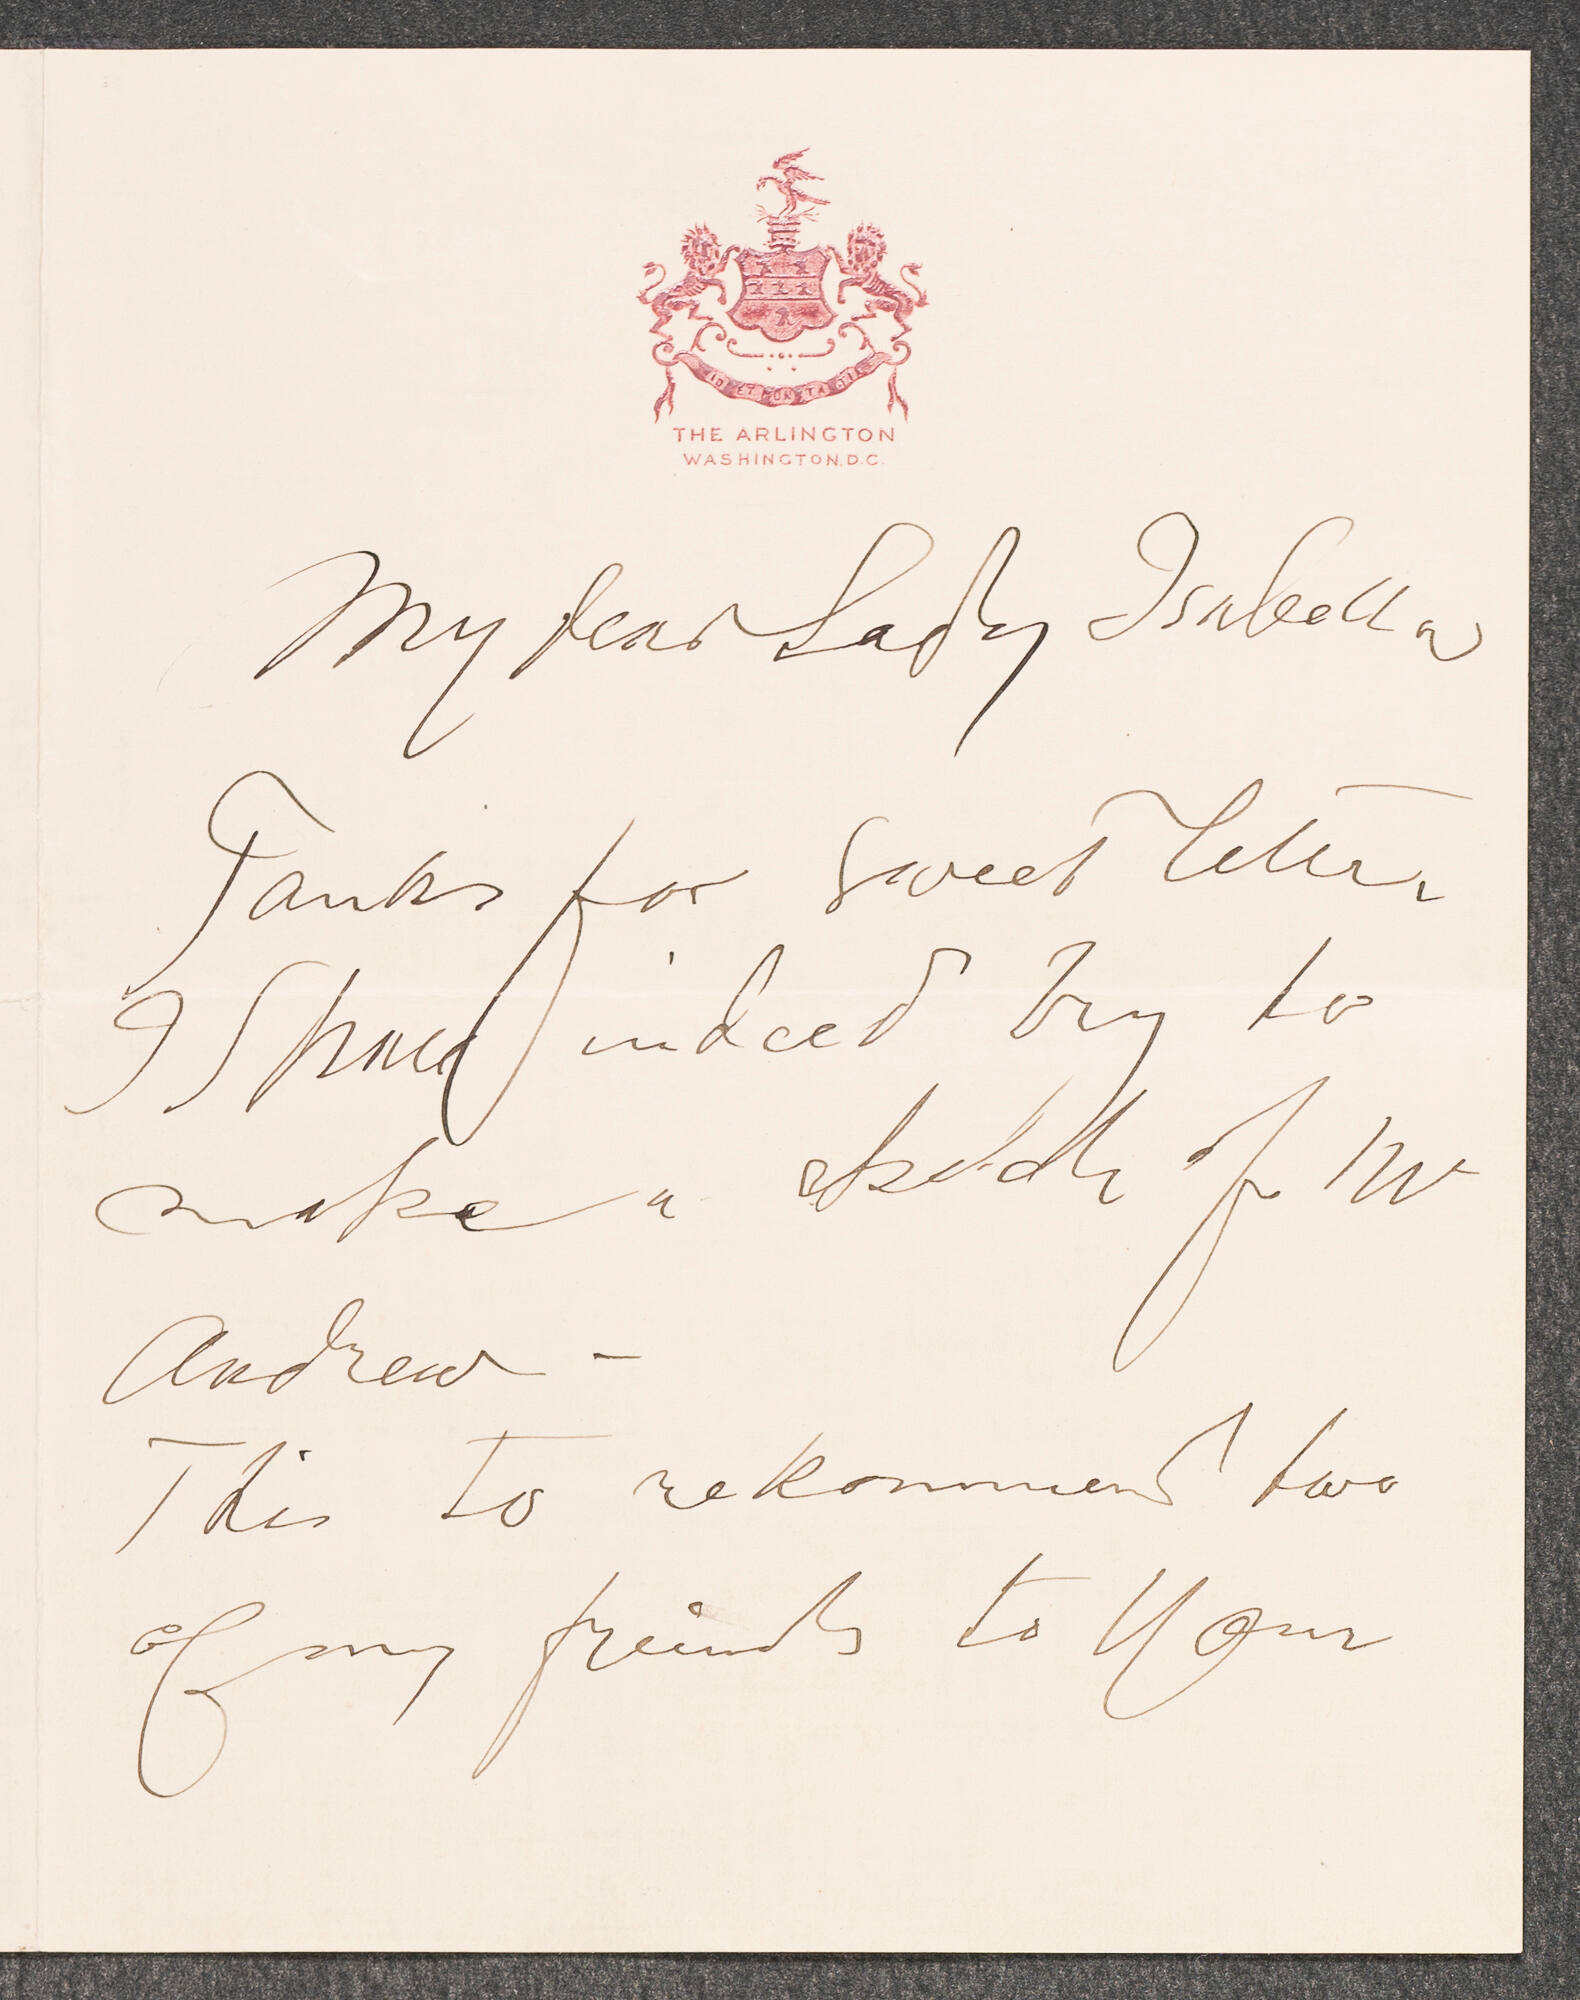 THE ARLINGTON
WASHINGTON, D.C.
My dear Lady Isabella
Tanks for sweet letter
I shall indeed try to
make a sketch of Mr
Andrew –
This to rekommend two
of my freinds to Your